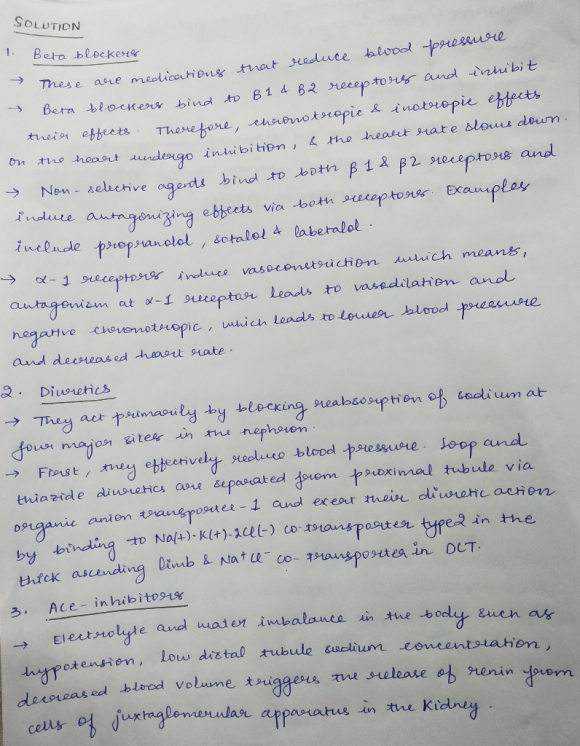 SOLUTION
1. Beta blockers
→ These are medications that reduce blood pressure
→ Beta blockers bind to B1 & B2 receptors and inhibit
their effects. Therefore, chronotropic & inotropic effects
on the heart undergo inhibition, & the heart rate slows down.
→ Non-selective agents bind to both β1 & β2 receptors and
induce antagonizing effects via both receptors. Examples
include propranolol, sotalol & labetalol.
→ α-1 receptors induce vasoconstriction which means,
antagonism at α-1 receptor leads to vasodilation and
negative chronotropic, which leads to lower blood pressure
and decreased heart rate.
2. Diuretics
→ They act primarily by blocking reabsorption of sodium at
four major sites in the nephron.
→ First, they effectively reduce blood pressure. Loop and
thiazide diuretics are separated from proximal tubule via
organic anion transporter-1 and exert their diuretic action
by binding to Na(+)·K(+)·2Cl(-) co-transporter type2 in the
thick ascending limb & Na⁺Cl⁻ co-transporter in DCT.
3. ACE-inhibitors
→ Electrolyte and water imbalance in the body such as
hypotension, low distal tubule sodium concentration,
decreased blood volume triggers the release of renin from
cells of juxtaglomerular apparatus in the Kidney.